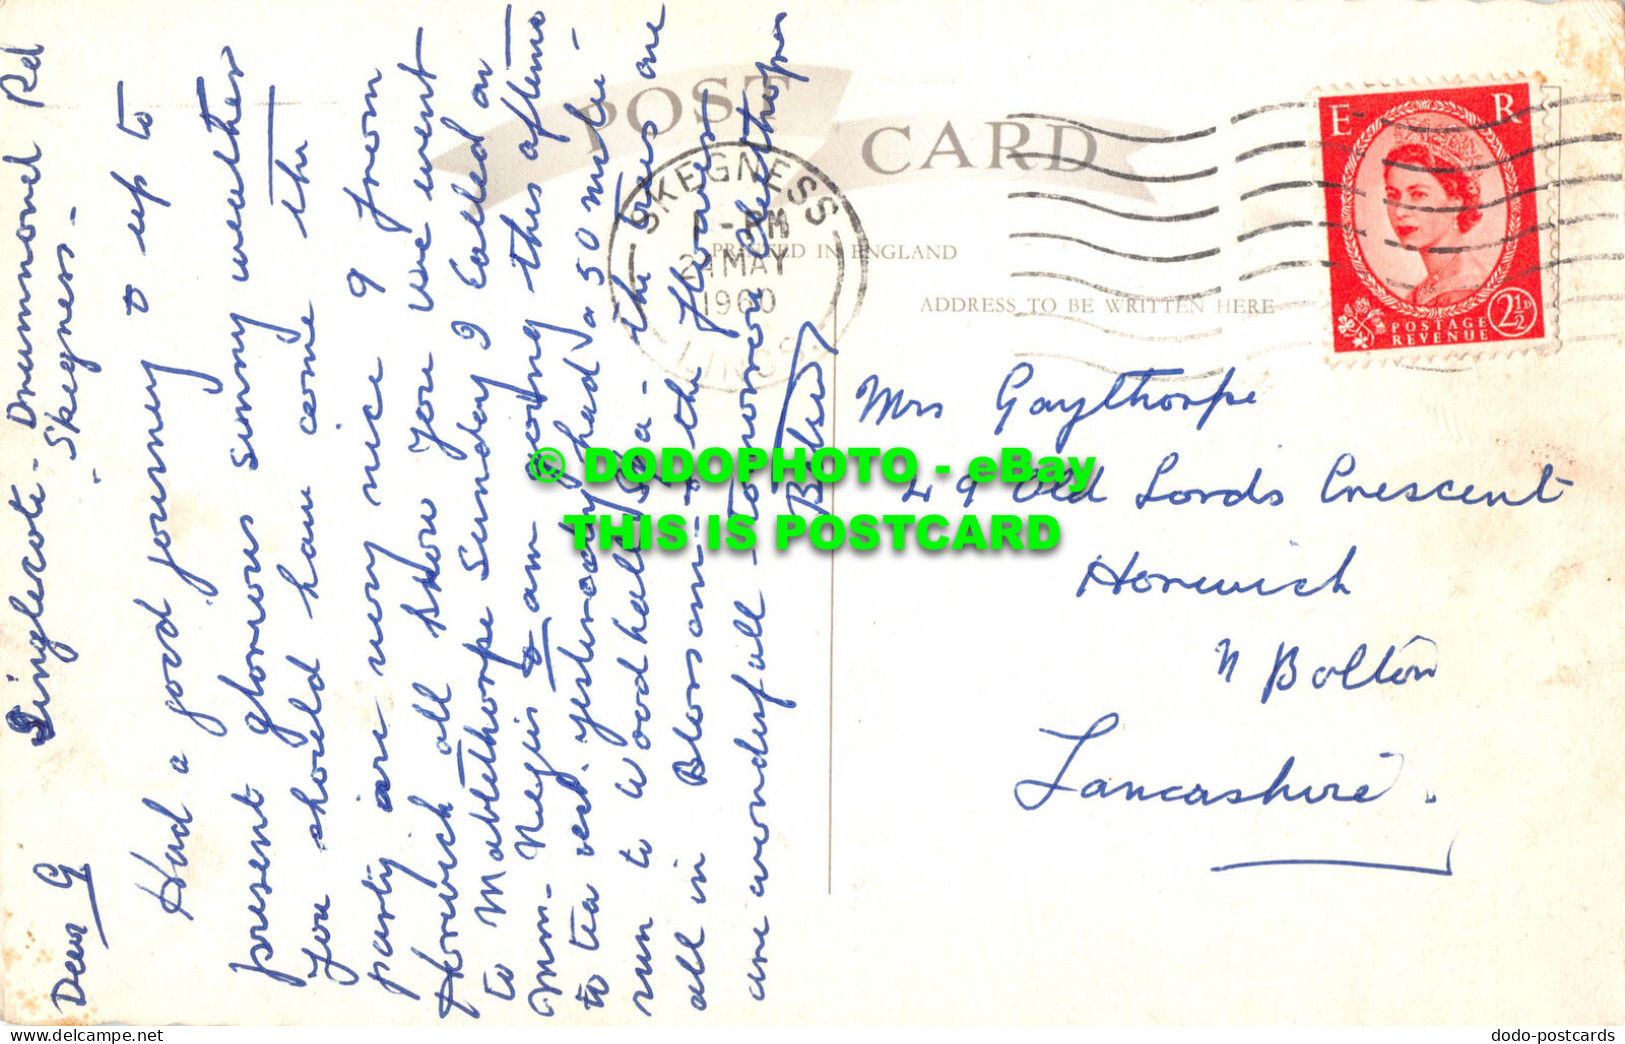 Singlecote - Drummond Rd
- Skegness -
Dear G
Had a good journey & up to
present glorious sunny weather
you should have come the
party are very nice 9 from
Horwich all know you we went
to Mablethorpe Sunday I called on
Mrs am going this afterno
to tea yesterday had a 50 mile
run to Woodhall Spa - the trees are
all in Blossom - & the flowers
are wonderfull - tomorrow
Elsie
POST
CARD
SKEGNESS
- PM
MAY
1960
LINCS
PRINTED IN ENGLAND
ADDRESS TO BE WRITTEN HERE
E R
POSTAGE
REVENUE
2½D
Mrs Gaythorpe
49 Old Lords Crescent
Horwich
N Bolton
Lancashire.
© DODOPHOTO - eBay
THIS IS POSTCARD
My-sammeln.com
dodo-postcards